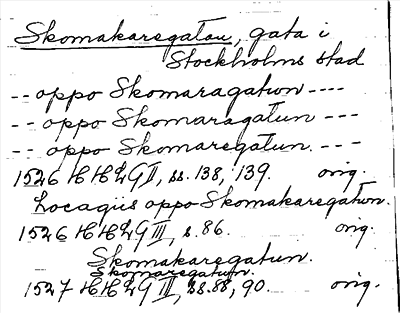 Skomakaregatan, gata i
Stockholms stad
-- oppo Skomaragatwn ----
-- oppo Skomaragatun ---
-- oppo Skomaregatun. ---
1526 HHLG II, ss. 138, 139. orig.
Locagiis oppo Skomakaregatwn.
1526 HHLG III, s. 86. orig.
Skomakaregatun.
Skomaregatun.
1527 HHLG III, ss. 88, 90. orig.